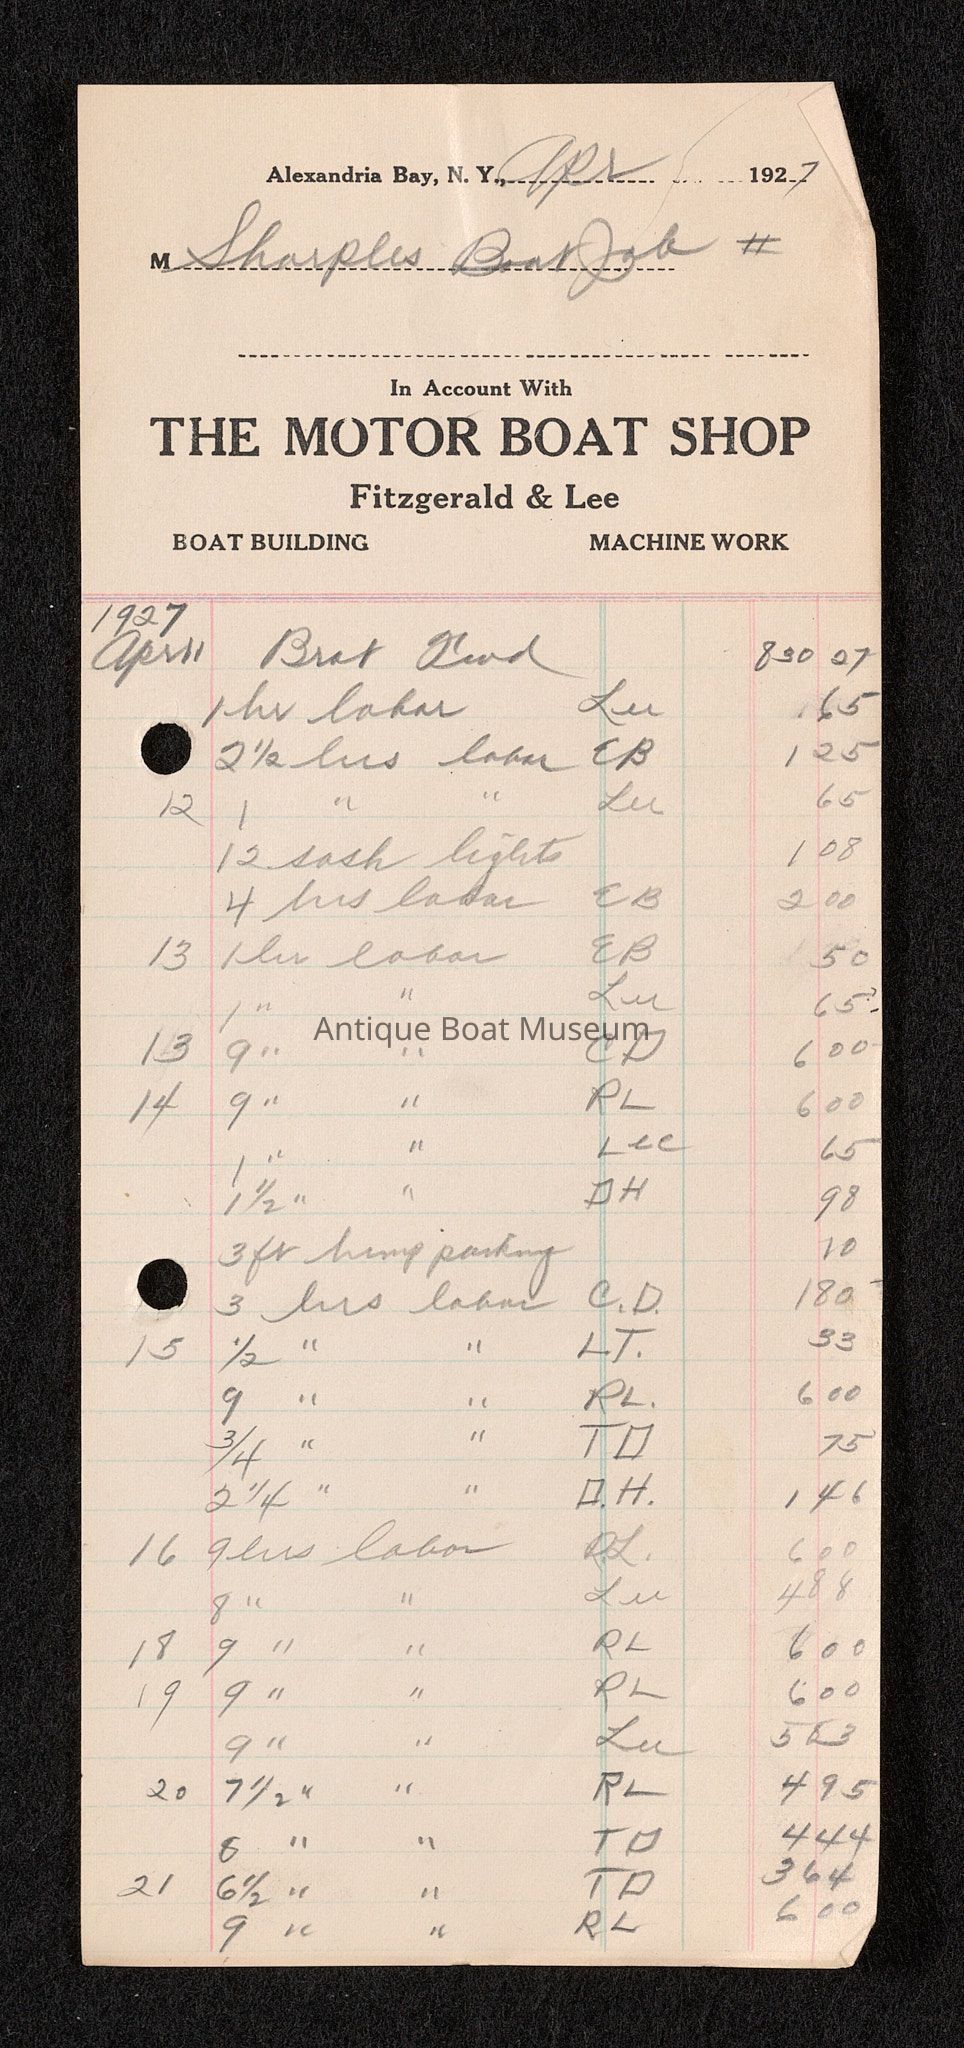 Alexandria Bay, N. Y., Apr 1927
M Sharples Boat Job #
In Account With
THE MOTOR BOAT SHOP
Fitzgerald & Lee
BOAT BUILDING MACHINE WORK
1927
April 11 Brot Fwd 830 27
1 hr labor Lee 65
2 1/2 hrs labor EB 1 25
12 1 " " Lee 65
12 sash lights 1 08
4 hrs labor EB 2 00
13 1 hr labor EB 50
1 " " Lee 65
Antique Boat Museum
13 9 " " CD 6 00
14 9 " " RL 6 00
1 " " Lee 65
1 1/2 " " DH 98
3 ft hemp packing 10
3 hrs labor C.D. 1 80
15 1/2 " " LT. 33
9 " " RL. 6 00
3/4 " " TD 75
2 1/4 " " D.H. 1 46
16 9 hrs labor RL. 6 00
8 " " Lee 4 88
18 9 " " RL 6 00
19 9 " " RL 6 00
9 " " Lee
20 7 1/2 " " RL 4 95
8 " " TD 4 44
21 6 1/2 " " TD 3 64
9 " " RL 6 00